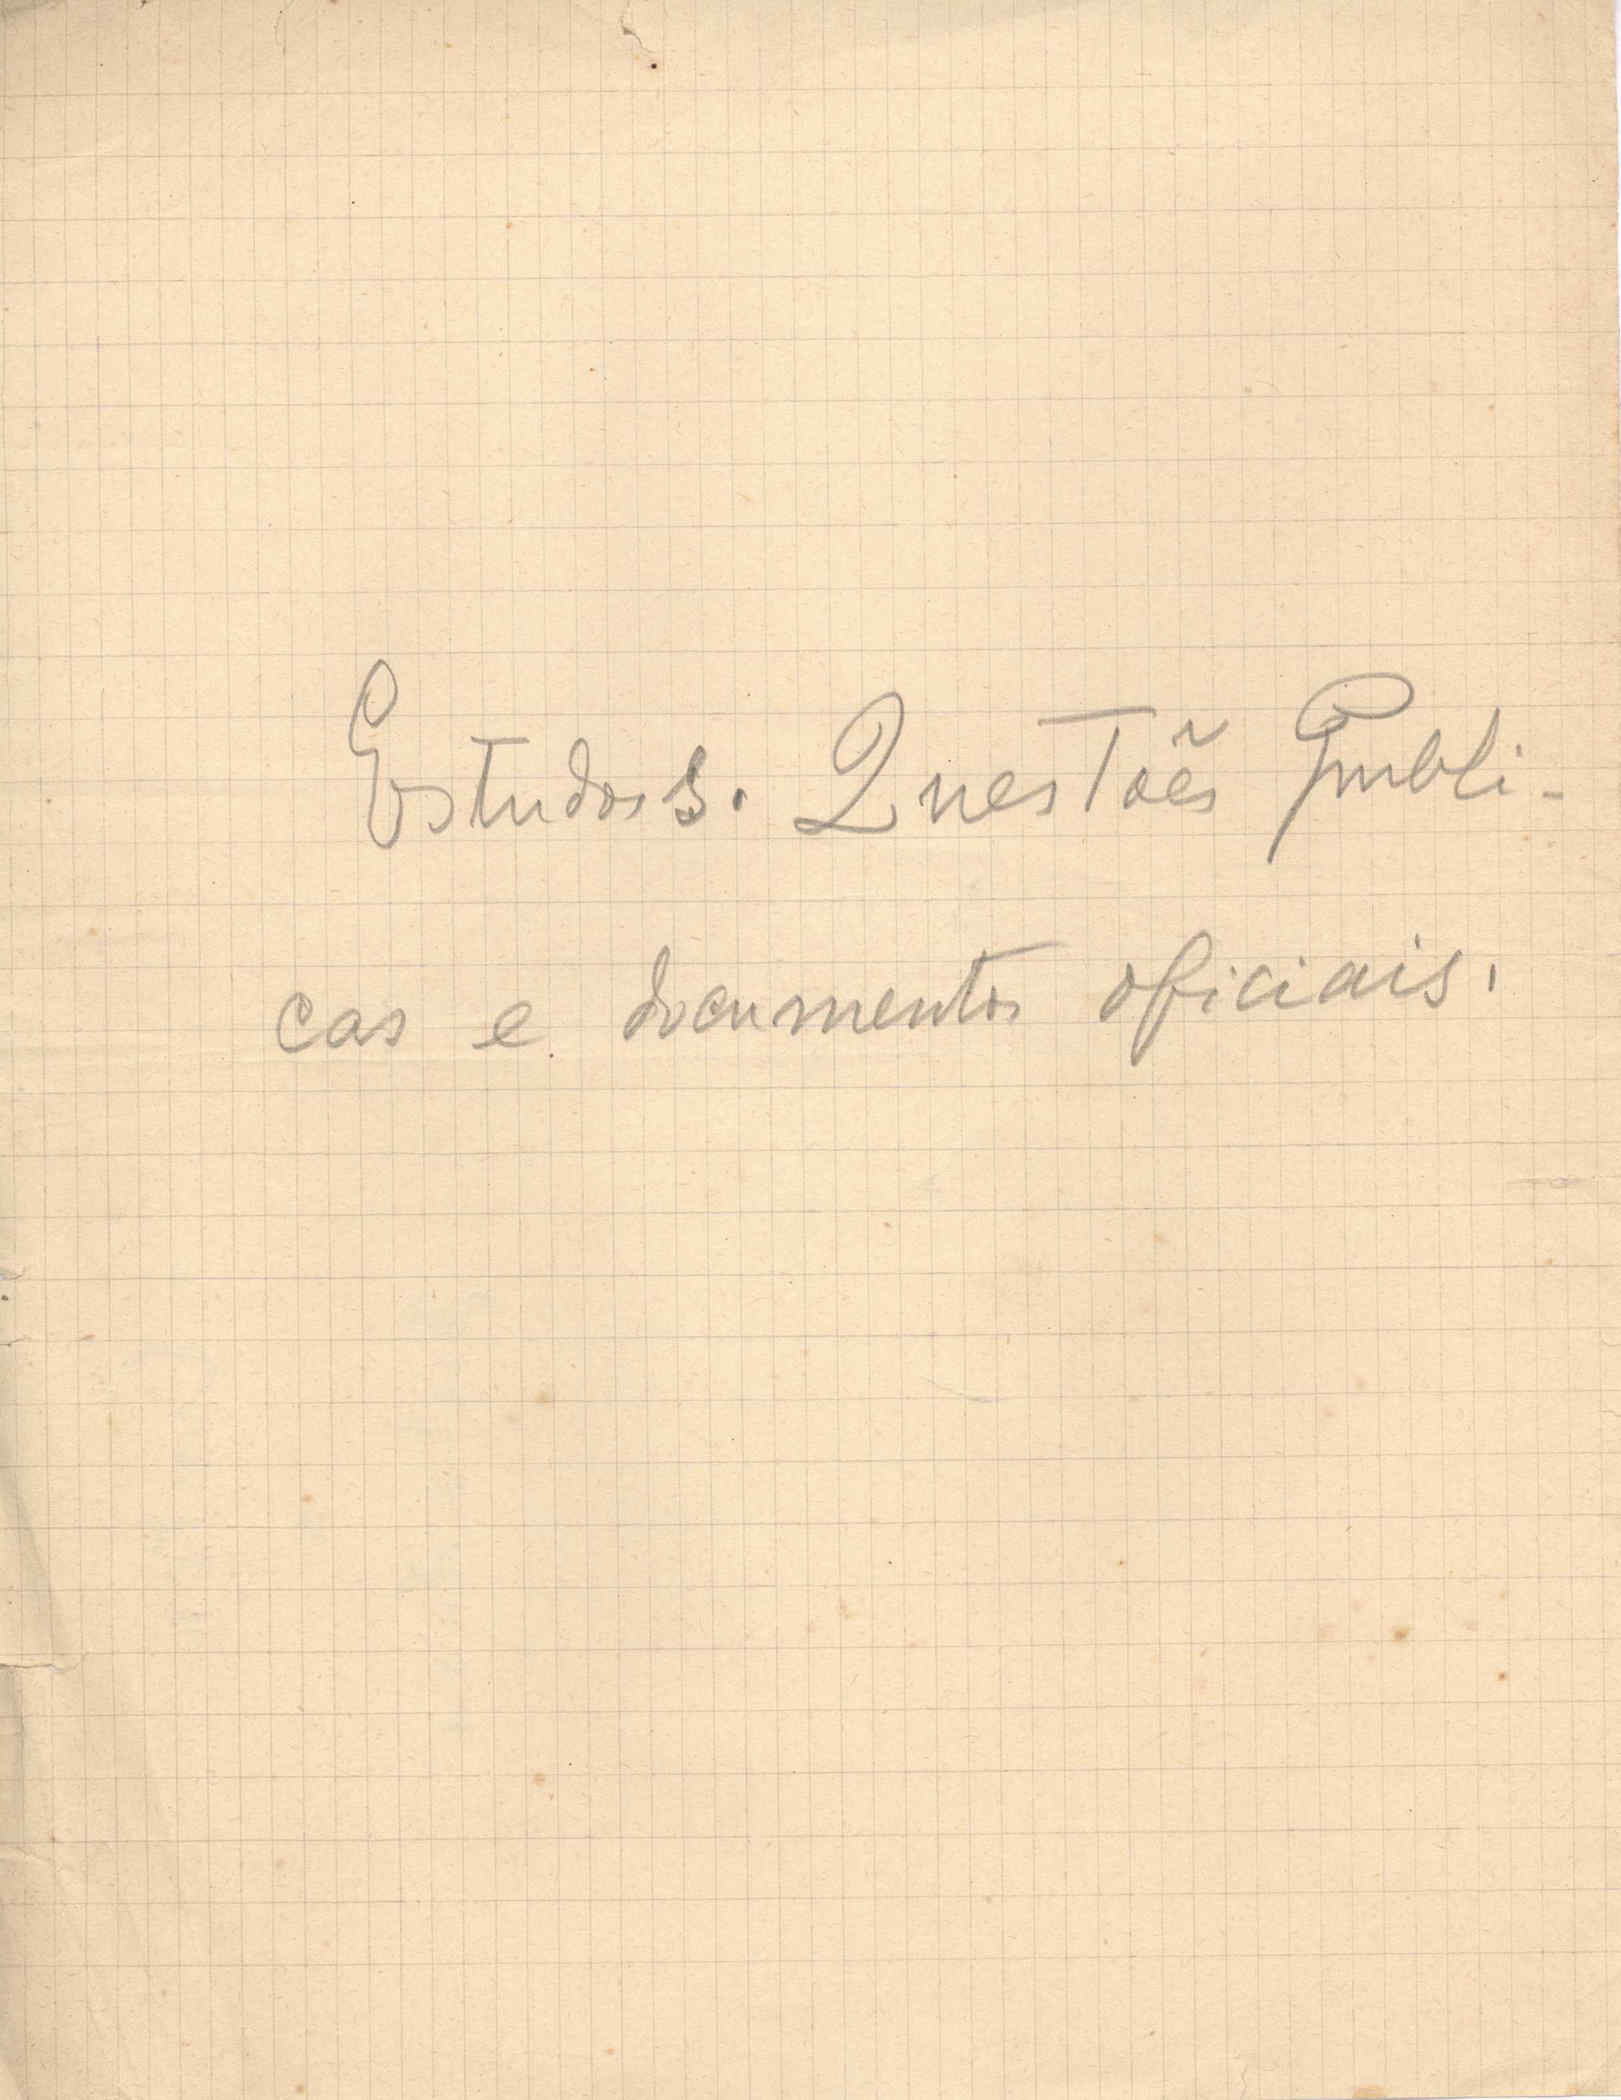 Estudos. Questões Publi-
cas e documentos oficiais.